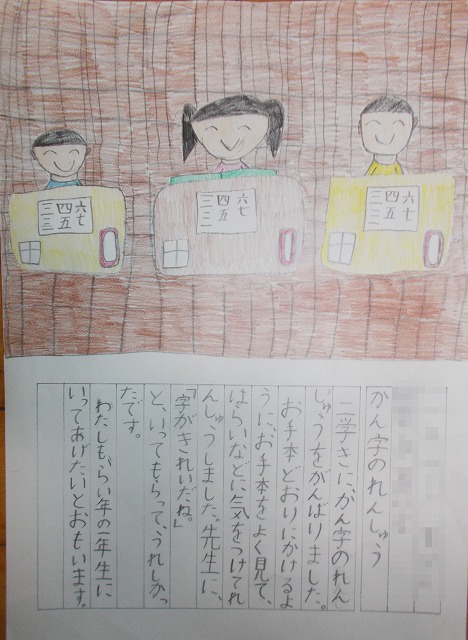 六七
四五
六七
四五
六七
四五
かん字のれんしゅう
二学きに、かん字のれん
しゅうをがんばりました。
お手本どおりにかけるよ
うに、お手本をよく見て、
はらいなどに気をつけてれ
んしゅうしました。先生に、
「字がきれいだね。」
と、いってもらって、うれしかっ
たです。
わたしも、らい年の一年生に
いってあげたいとおもいます。